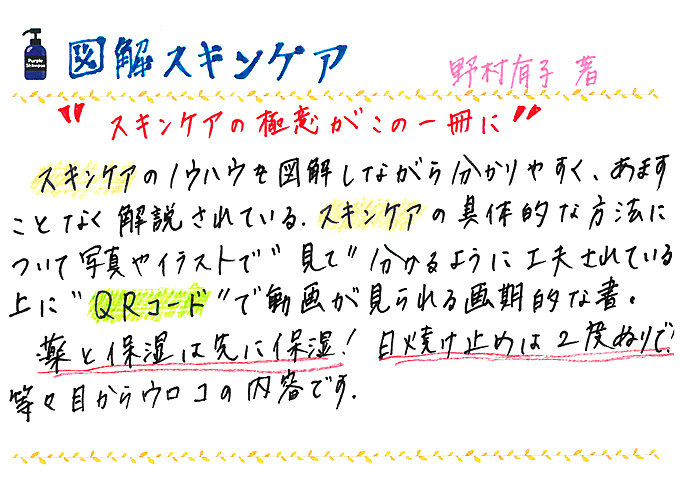 Purple Shampoo
図解スキンケア
野村有子 著
"スキンケアの極意がこの一冊に"
スキンケアのノウハウを図解しながら分かりやすく、あます
ことなく解説されている。スキンケアの具体的な方法に
ついて写真やイラストで"見て"分かるように工夫されている
上に"QRコード"で動画が見られる画期的な書。
薬と保湿は先に保湿! 日焼け止めは2度ぬりで!
等々目からウロコの内容です.